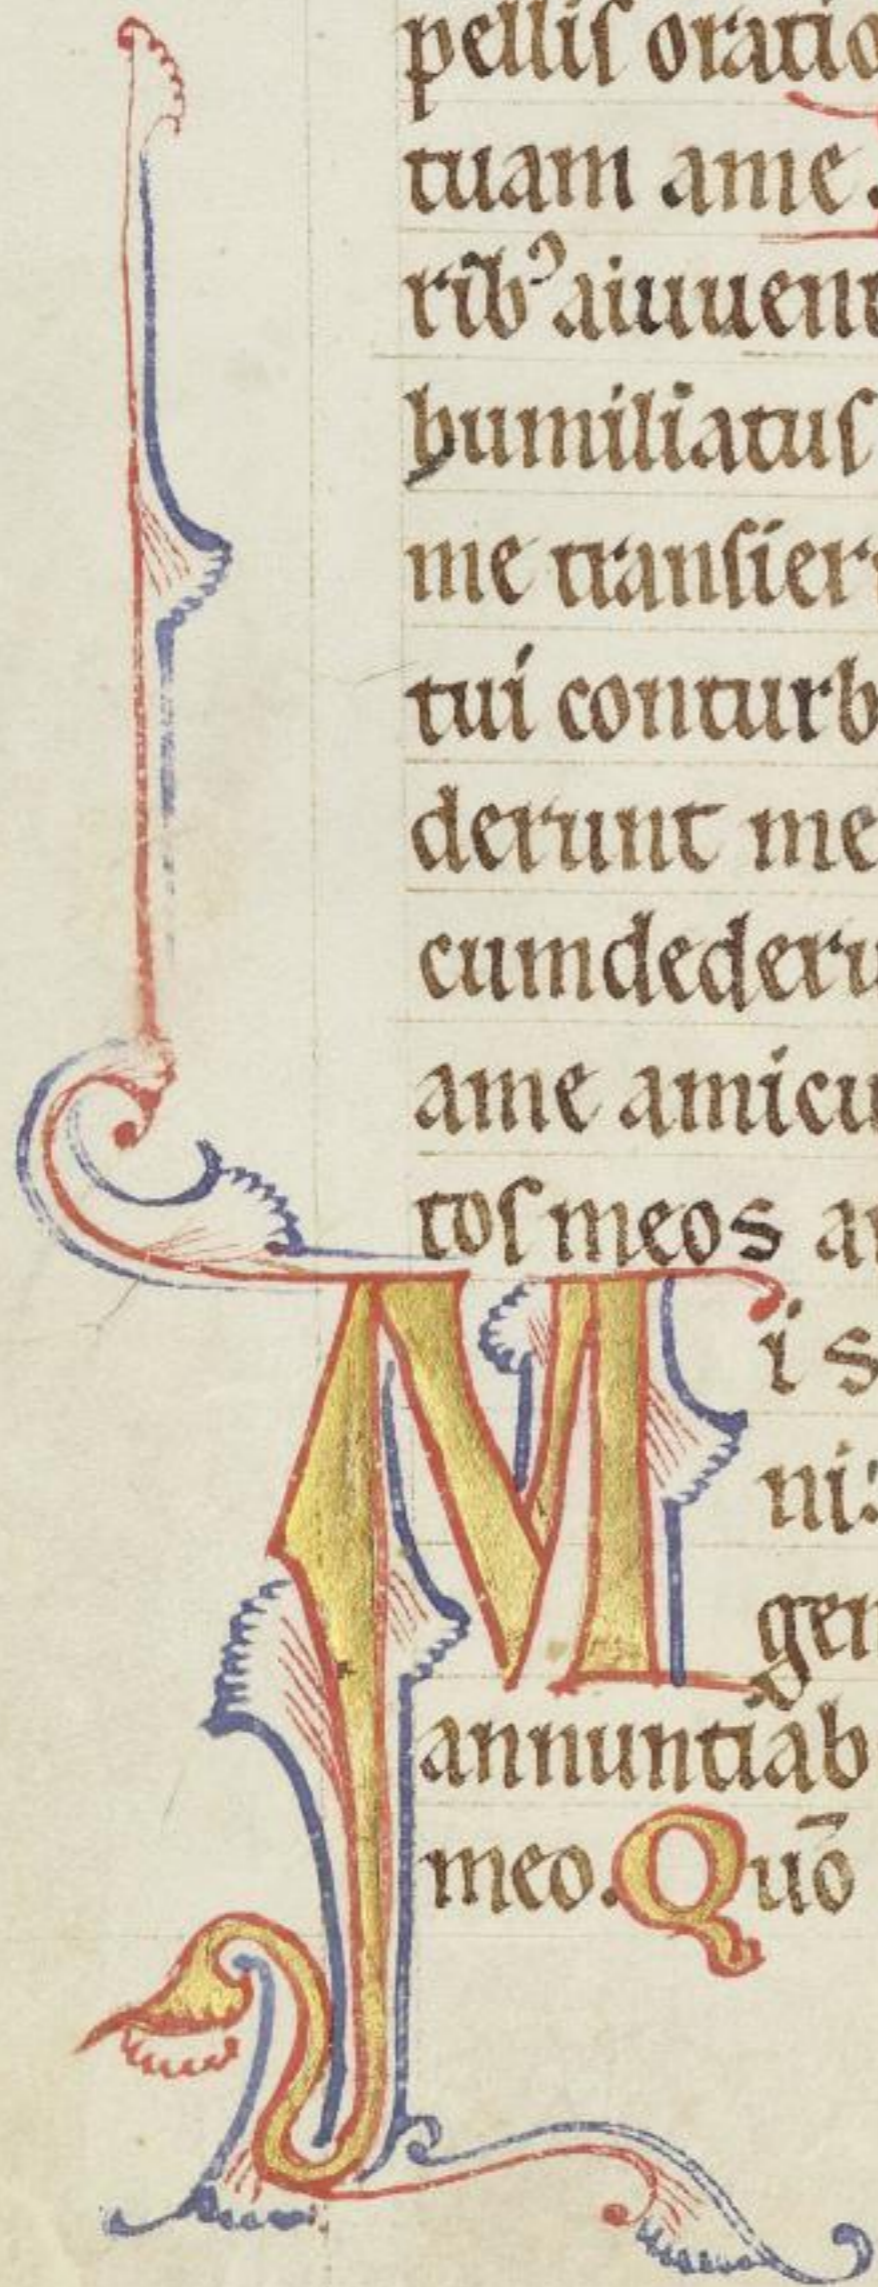 pellis oratio
tuam a me.
ribꝰ a iuuent
humiliatus
me transier
tui conturb
derunt me
cumdederu
a me amicu
tos meos a
M i s
ni:
gen
annuntiab
meo. Quō